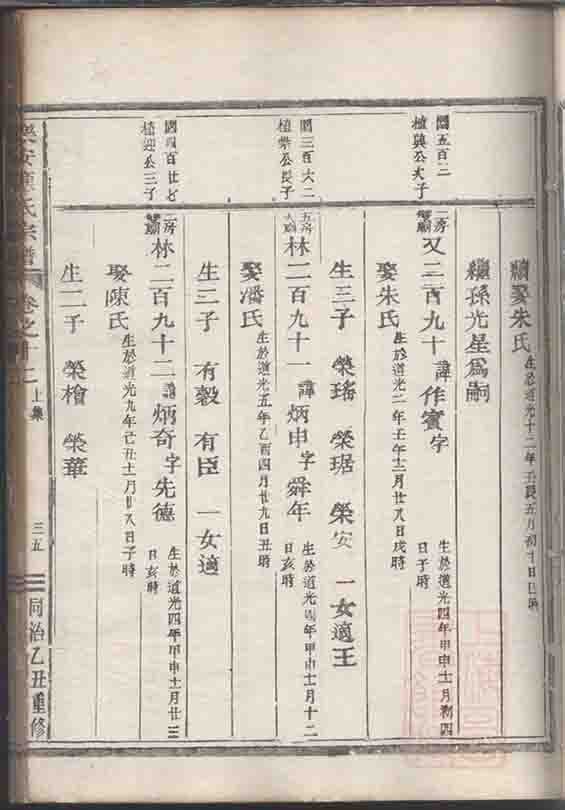 續娶朱氏 生於道光十二年壬辰五月初十日巳時
繼孫光星爲嗣
國五百三
植興公次子
二房 又二百九十 諱 作賓 字 生於道光四年甲申十一月初四
日子時
娶朱氏 生於道光二年壬午十二月廿八日戌時
生三子 榮瑤 榮琚 榮安 一女適王
國三百六二
植棠公長子
五房 林二百九十一 諱 炳申 字 舜年 生於道光四年甲申十一月十二
日亥時
娶潘氏 生於道光五年乙酉四月廿九日丑時
生二子 有穀 有臣 一女適
國四百廿七
植迎公三子
二房 林二百九十二 諱 炳奇 字 先德 生於道光四年甲申十一月廿三
日亥時
娶陳氏 生於道光九年己丑十一月廿八日子時
生二子 榮檜 榮華
樂安 氏宗譜 卷之十二 上集 三五 同治乙丑重修